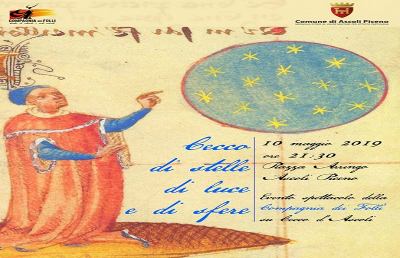 COMPAGNIA DEI FOLLI
Comune di Ascoli Piceno
Cecco
di stelle
di luce
e di sfere
10 maggio 2019
ore 21:30
Piazza Arringo
Ascoli Piceno
Evento spettacolo della
Compagnia dei Folli
su Cecco d'Ascoli